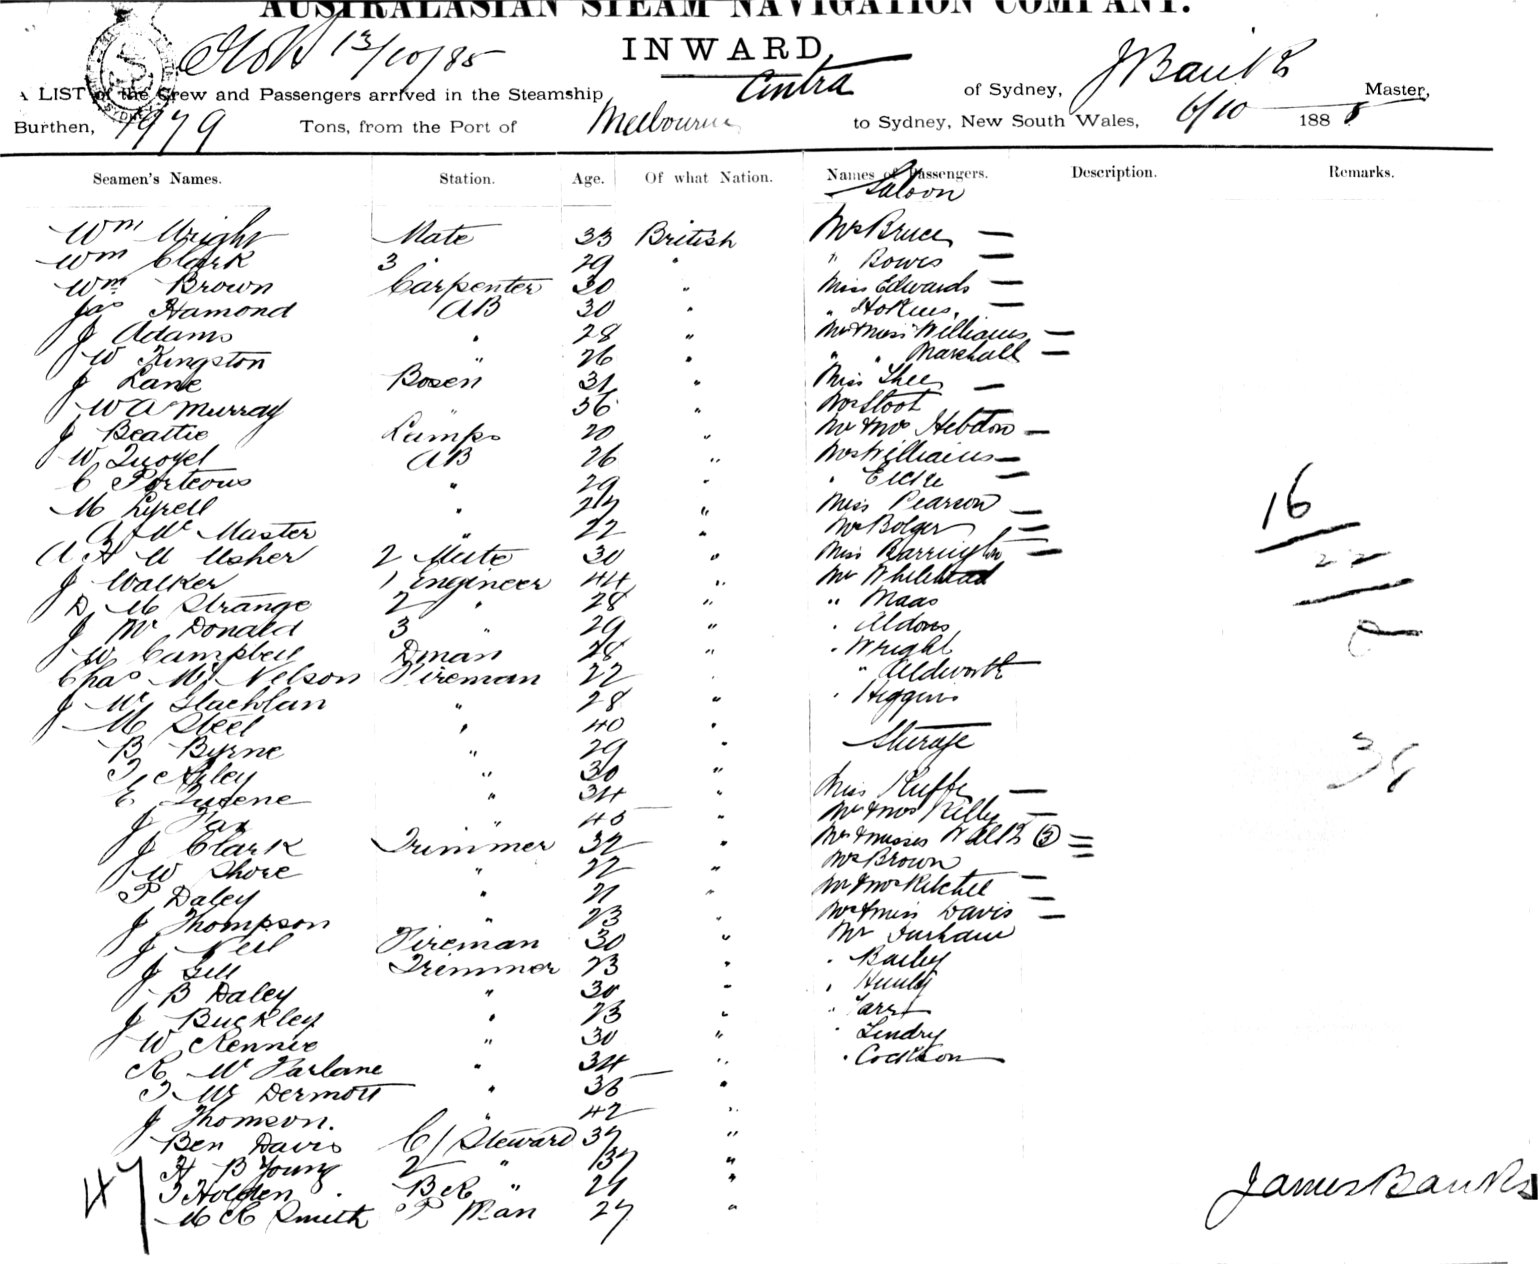 AUSTRALASIAN STEAM NAVIGATION COMPANY.
13/10/85
INWARD,
A LIST of the Crew and Passengers arrived in the Steamship Cintra of Sydney, J Banks Master,
Burthen, 1979 Tons, from the Port of Melbourne to Sydney, New South Wales, 6/10 1885
Seamen's Names. Station. Age. Of what Nation. Names of Passengers. Description. Remarks.
Saloon
Wm Wright Mate 33 British Mrs Bruce —
Wm Clark 3 " 29 " " Bowes —
Wm Brown Carpenter 30 " Miss Edwards —
Jas Hamond AB 30 " " Hoskins. —
J Adams " 28 " Mr & Miss Williams —
W Kingston " 26 " " " Marshall —
J Lane Bosen 31 " Miss Shee —
W A Murray " 36 " Mrs Stoot
J Beattie Lamps 20 " Mr & Mrs Hebdon —
W Quoyel AB 26 " Mrs Williams —
C Porteous " 29 " "
M Lyrell " 27 " Miss Pearson —
A Mc Master " 22 " Mrs Bolger —
A H U Usher 2 Mate 30 " Miss Barrington —
J Walker 1 Engineer 44 " Mr Whitehead
D Mc Strange 2 " 28 " " Maas
J Mc Donald 3 " 29 " " Aldous
W Campbell Dman 28 " " Wright
Chas Wy Nelson Fireman 22 " " Alldworth
J Mc Glachlan " 28 " " Higgins
M Steel " 40 "
B Byrne " 29 " Sterage
T " 30 "
E " 34 " Miss —
J " 45 " Mr & Mrs Kelly —
J Clark Trimmer 32 " Mrs & Misses Walsh (3)
W Shore " 22 " Mrs Brown
P Daley " 21 " Mr & Mrs Kitchel —
J Thompson " 23 " Mrs & Miss Davis —
J Neil Fireman 30 " Mr Durham
J Gill Trimmer 23 " " Bailey
B Daley " 30 " "
J Buckley " 23 " "
W Rennie " 30 " " Lendry
R Mc Farlane " 34 " "
T Mc Dermott " 35 "
J Thomson. " 42 "
Ben Davis C/ Steward 37 "
H B Young 2 " 37 "
T Holden B R " 24 "
M C Smith P Man 27 "
47
16
22
38
James Banks